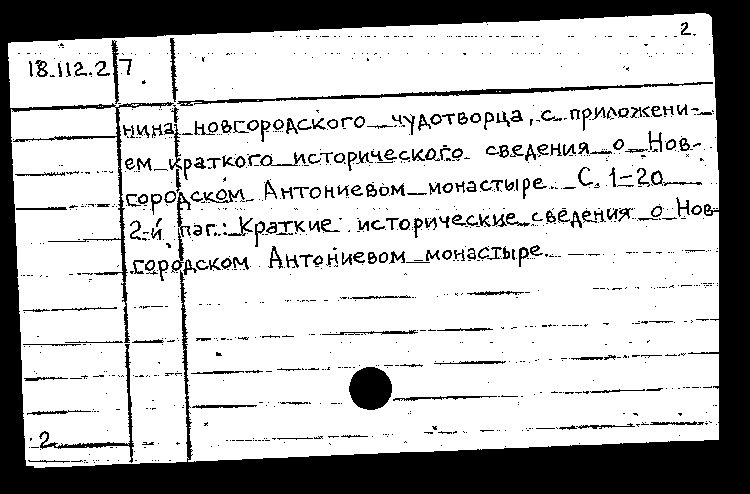 2.
18.112.2.7
нина новгородского чудотворца, с приложени-
ем краткого исторического сведения о Нов-
городском Антониевом монастыре С. 1-20
2-й паг.: Краткие исторические сведения о Нов-
городском Антониевом монастыре.
2